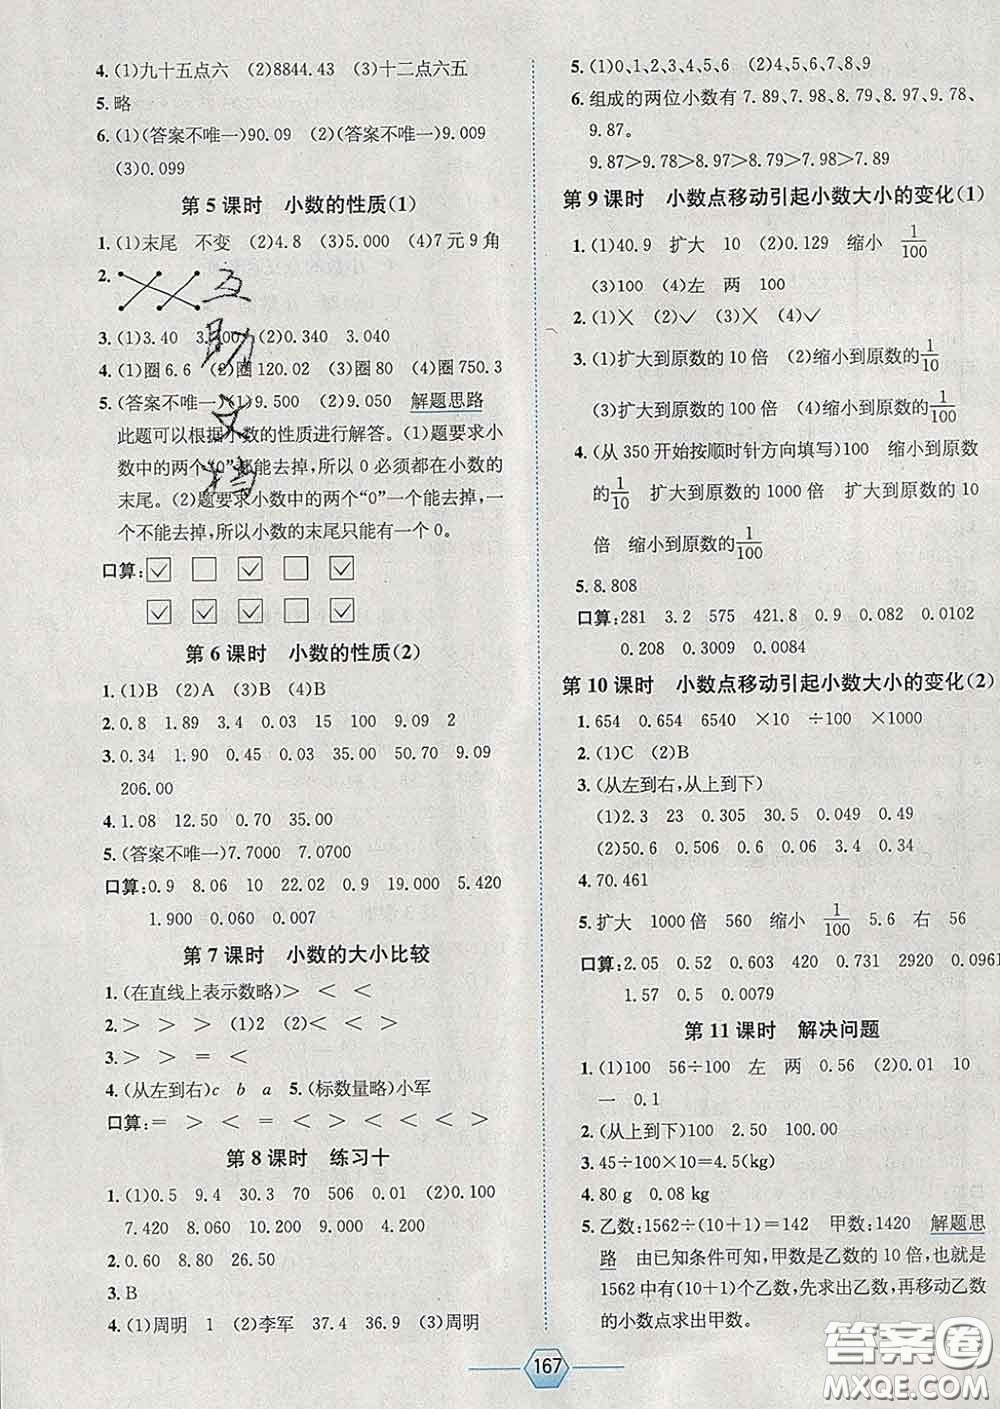 4. (1)九十五点六 (2)8844.43 (3)十二点六五
5. 略
6. (1)(答案不唯一)90.09 (2)(答案不唯一)9.009
(3)0.099
第 5 课时 小数的性质(1)
1. (1)末尾 不变 (2)4.8 (3)5.000 (4)7元9角
2.
3. (1)3.40 3.400 (2)0.340 3.040
4. (1)圈 6.6 (2)圈 120.02 (3)圈 80 (4)圈 750.3
5. (答案不唯一)(1)9.500 (2)9.050 解题思路
此题可以根据小数的性质进行解答。(1)题要求小
数中的两个“0”都能去掉,所以 0 必须都在小数的
末尾。(2)题要求小数中的两个“0”一个能去掉,一
个不能去掉,所以小数的末尾只能有一个 0。
口算: ☑ □ ☑ □ ☑
☑ ☑ ☑ □ ☑
第 6 课时 小数的性质(2)
1. (1)B (2)A (3)B (4)B
2. 0.8 1.89 3.4 0.03 15 100 9.09 2
3. 0.34 1.90 0.45 0.03 35.00 50.70 9.09
206.00
4. 1.08 12.50 0.70 35.00
5. (答案不唯一)7.7000 7.0700
口算: 0.9 8.06 10 22.02 0.9 19.000 5.420
1.900 0.060 0.007
第 7 课时 小数的大小比较
1. (在直线上表示数略)> < <
2. > > > (1)2 (2)< < >
3. > > = <
4. (从左到右)c b a 5. (标数量略)小军
口算: = > < = < > < < < >
第 8 课时 练习十
1. (1)0.5 9.4 30.3 70 506 0.01 (2)0.100
7.420 8.060 10.250 9.000 4.200
2. 0.60 8.80 26.50
3. B
4. (1)周明 1 (2)李军 37.4 36.9 (3)周明
5. (1)0、1、2、3、4、5、6 (2)4、5、6、7、8、9
6. 组成的两位小数有 7.89、7.98、8.79、8.97、9.78、
9.87。
9.87>9.78>8.97>8.79>7.98>7.89
第 9 课时 小数点移动引起小数大小的变化(1)
1. (1)40.9 扩大 10 (2)0.129 缩小 1/100
(3)100 (4)左 两 100
2. (1)× (2)√ (3)× (4)√
3. (1)扩大到原数的 10 倍 (2)缩小到原数的 1/10
(3)扩大到原数的 100 倍 (4)缩小到原数的 1/100
4. (从 350 开始按顺时针方向填写)100 缩小到原数
的 1/10 扩大到原数的 1000 倍 扩大到原数的 10
倍 缩小到原数的 1/100
5. 8.808
口算: 281 3.2 575 421.8 0.9 0.082 0.0102
0.208 0.309 3.01 0.0084
第 10 课时 小数点移动引起小数大小的变化(2)
1. 654 0.654 6540 ×10 ÷100 ×1000
2. (1)C (2)B
3. (从左到右,从上到下)
(1)2.3 23 0.305 30.5 0.049 0.49
(2)50.6 0.506 0.6 0.06 3.4 0.34
4. 70.461
5. 扩大 1000倍 560 缩小 1/100 5.6 右 56
口算: 2.05 0.52 0.603 420 0.731 2920 0.0961
1.57 0.5 0.0079
第 11 课时 解决问题
1. (1)100 56÷100 左 两 0.56 (2)0.01 10
一 0.1
2. (从上到下)100 2.50 100.00
3. 45÷100×10=4.5(kg)
4. 80 g 0.08 kg
5. 乙数:1562÷(10+1)=142 甲数:1420 解题思
路 由已知条件可知,甲数是乙数的 10 倍,也就是
1562 中有(10+1)个乙数,先求出乙数,再移动乙数
的小数点求出甲数。
167
互
助
文
档
答案圈
MXQE.COM